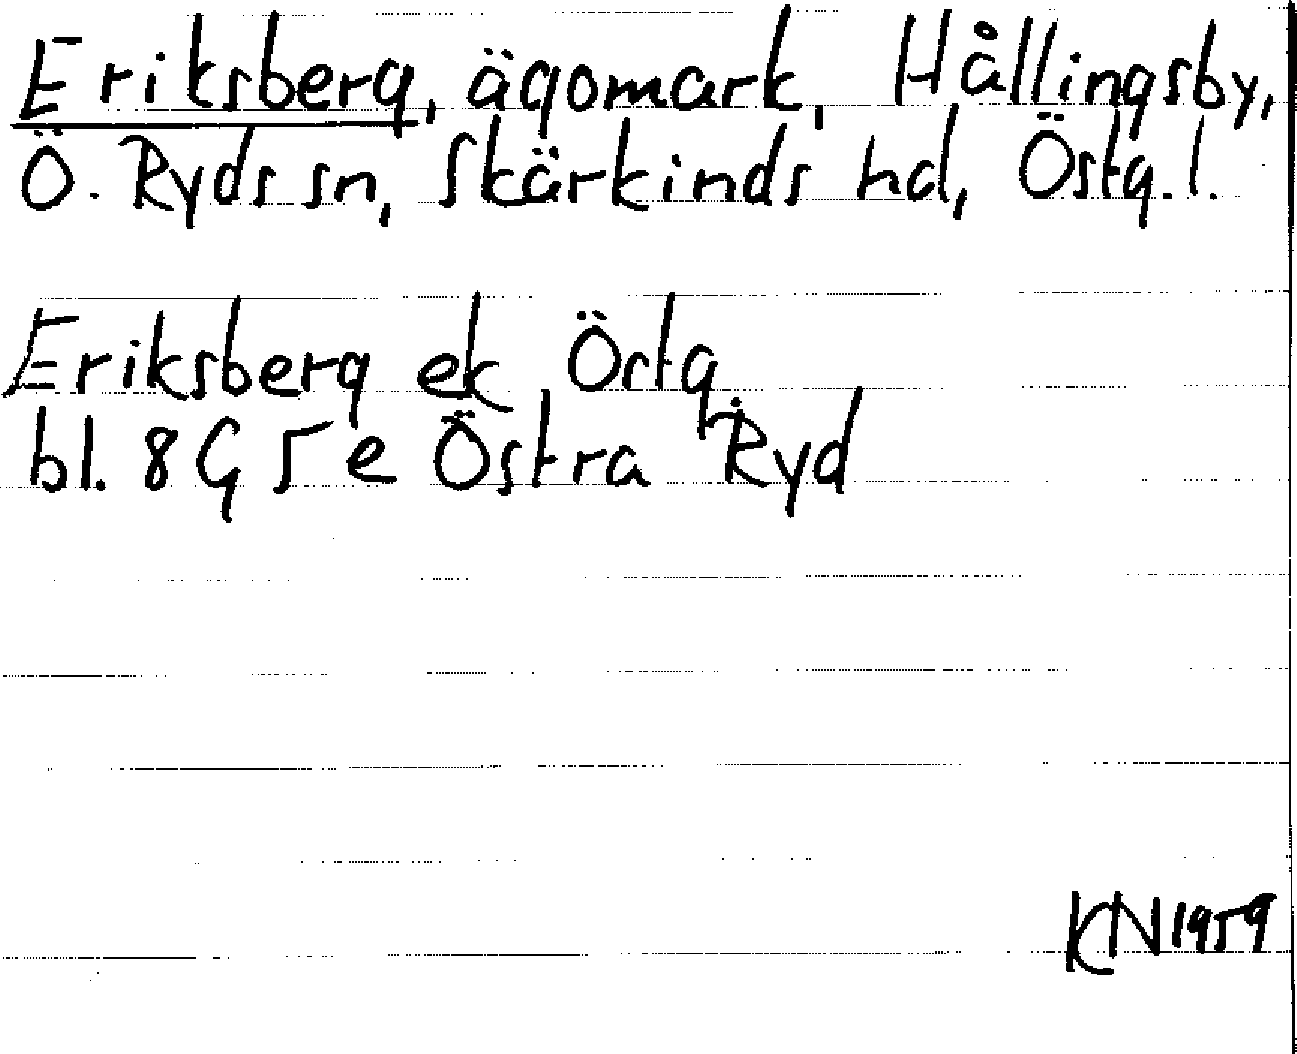 Eriksberg, ägomark, Hållingsby,
Ö. Ryds sn, Skärkinds hd, Östg. l.
Eriksberg ek Östg
bl. 8 G 5 e Östra Ryd
KN 1959